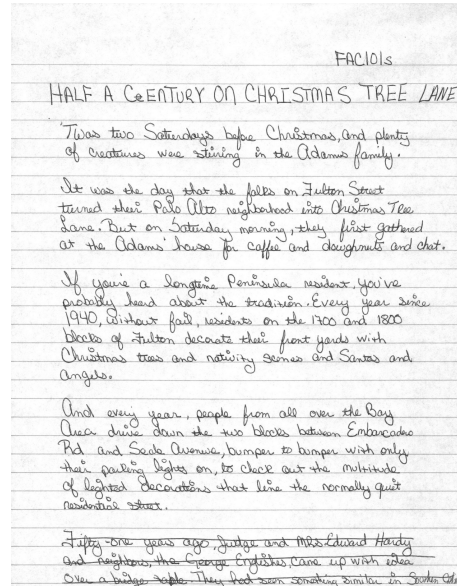 FAC101s
HALF A CENTURY ON CHRISTMAS TREE LANE
'Twas two Saturdays before Christmas, and plenty
of creatures were stirring in the Adams family.
It was the day that the folks on Fulton Street
turned their Palo Alto neighborhood into Christmas Tree
Lane. But on Saturday morning, they first gathered
at the Adams' house for coffee and doughnuts and chat.
If you're a longtime Peninsula resident, you've
probably heard about the tradition. Every year since
1940, without fail, residents on the 1700 and 1800
blocks of Fulton decorate their front yards with
Christmas trees and nativity scenes and Santas and
angels.
And every year, people from all over the Bay
Area drive down the two blocks between Embarcadro
Rd and Seale Avenue, bumper to bumper with only
their parking lights on, to check out the multitude
of lighted decorations that line the normally quit
residential street.
Fifty-one years ago, Judge and Mrs Edward Hardy
and neighbors, the George Englishes, came up with idea
over a bridge table. They had seen something similar in